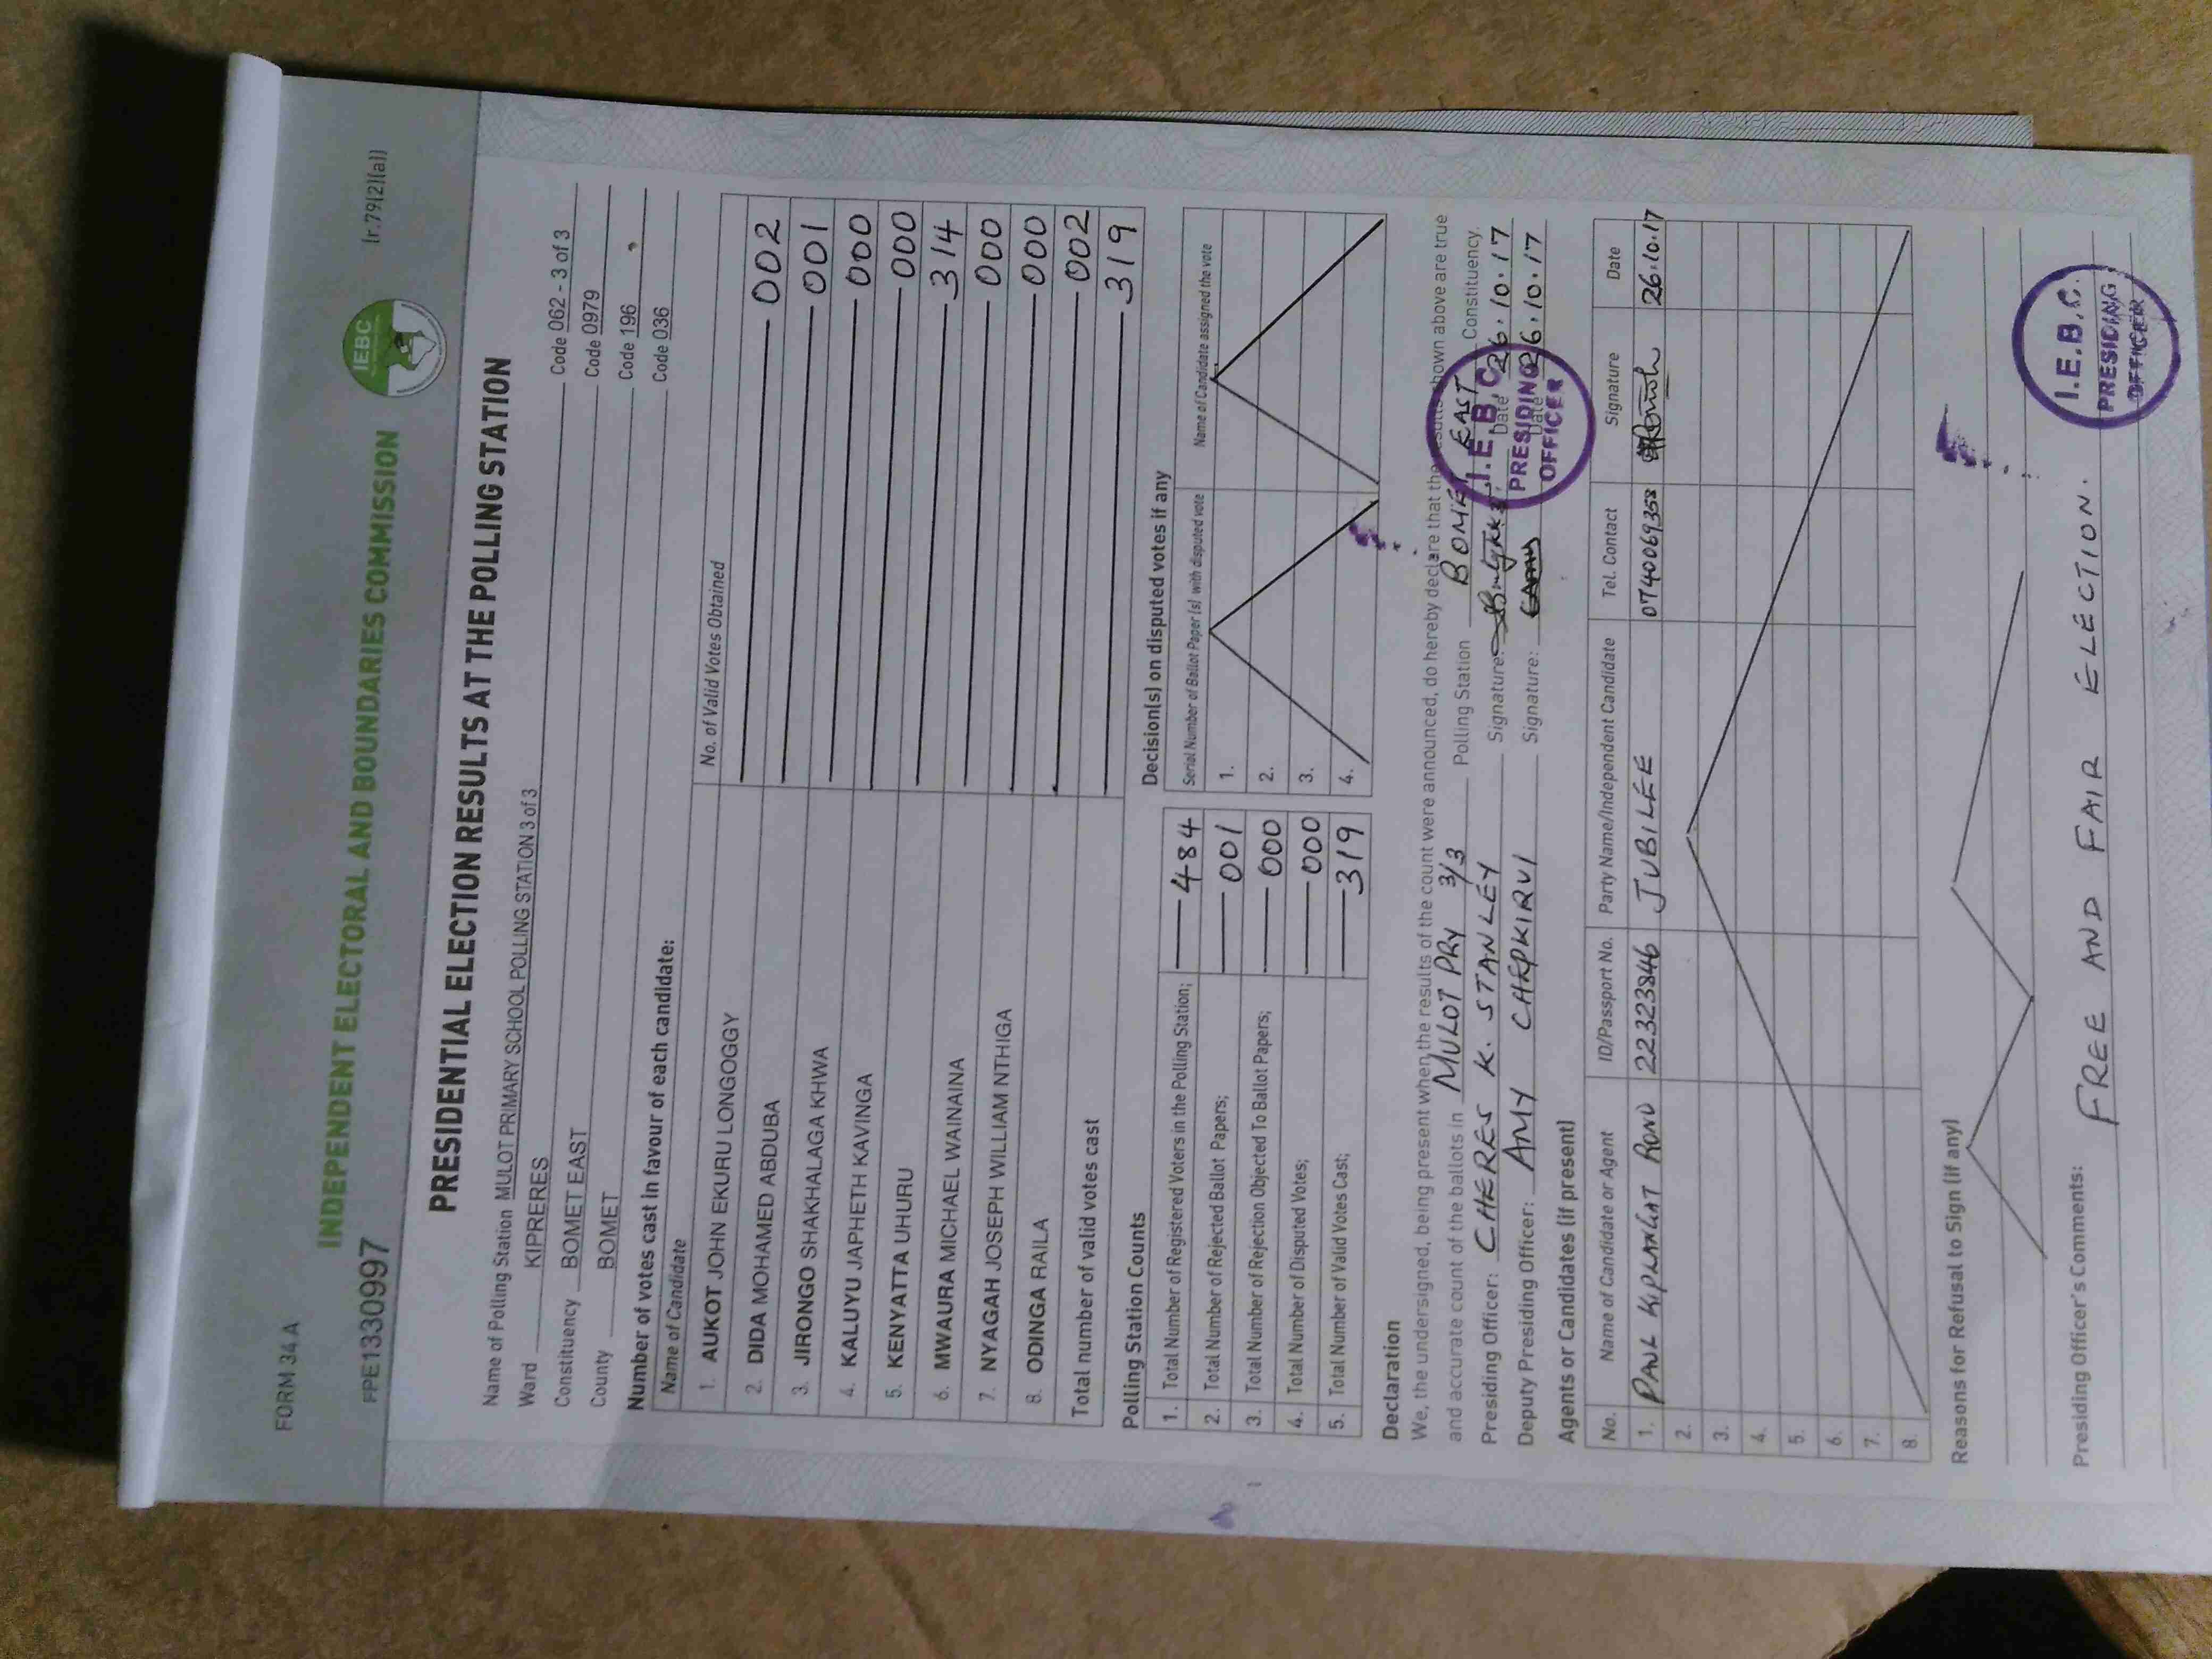 FORM 34 A
INDEPENDENT ELECTORAL AND BOUNDARIES COMMISSION
IEBC
(r.79(2)(a))
FPE1330997
PRESIDENTIAL ELECTION RESULTS AT THE POLLING STATION
Name of Polling Station MULOT PRIMARY SCHOOL POLLING STATION 3 of 3 Code 062 - 3 of 3
Ward KIPRERES Code 0979
Constituency BOMET EAST Code 196
County BOMET Code 036
Number of votes cast in favour of each candidate:
Name of Candidate No. of Valid Votes Obtained
1. AUKOT JOHN EKURU LONGOGGY 002
2. DIDA MOHAMED ABDUBA 001
3. JIRONGO SHAKHALAGA KHWA 000
4. KALUYU JAPHETH KAVINGA 000
5. KENYATTA UHURU 314
6. MWAURA MICHAEL WAINAINA 000
7. NYAGAH JOSEPH WILLIAM NTHIGA 000
8. ODINGA RAILA 002
Total number of valid votes cast 319
Polling Station Counts
1. Total Number of Registered Voters in the Polling Station; 484
2. Total Number of Rejected Ballot Papers; 001
3. Total Number of Rejection Objected To Ballot Papers; 000
4. Total Number of Disputed Votes; 000
5. Total Number of Valid Votes Cast; 319
Decision(s) on disputed votes if any
Serial Number of Ballot Paper (s) with disputed vote Name of Candidate assigned the vote
1.
2.
3.
4.
Declaration
We, the undersigned, being present when the results of the count were announced, do hereby declare that the results shown above are true
and accurate count of the ballots in MULOT PRY 3/3 Polling Station BOMET EAST Constituency.
Presiding Officer: CHERES K. STANLEY Signature: Date 26.10.17
Deputy Presiding Officer: AMY CHEPKIRUI Signature: Date 26.10.17
I.E.B.C.
PRESIDING
OFFICER
Agents or Candidates (if present)
No. Name of Candidate or Agent ID/Passport No. Party Name/Independent Candidate Tel. Contact Signature Date
1. PAUL KIPLANGAT RONO 22323846 JUBILEE 0740069358 26.10.17
2.
3.
4.
5.
6.
7.
8.
Reasons for Refusal to Sign (if any)
Presiding Officer's Comments:
FREE AND FAIR ELECTION.
I.E.B.C.
PRESIDING
OFFICER